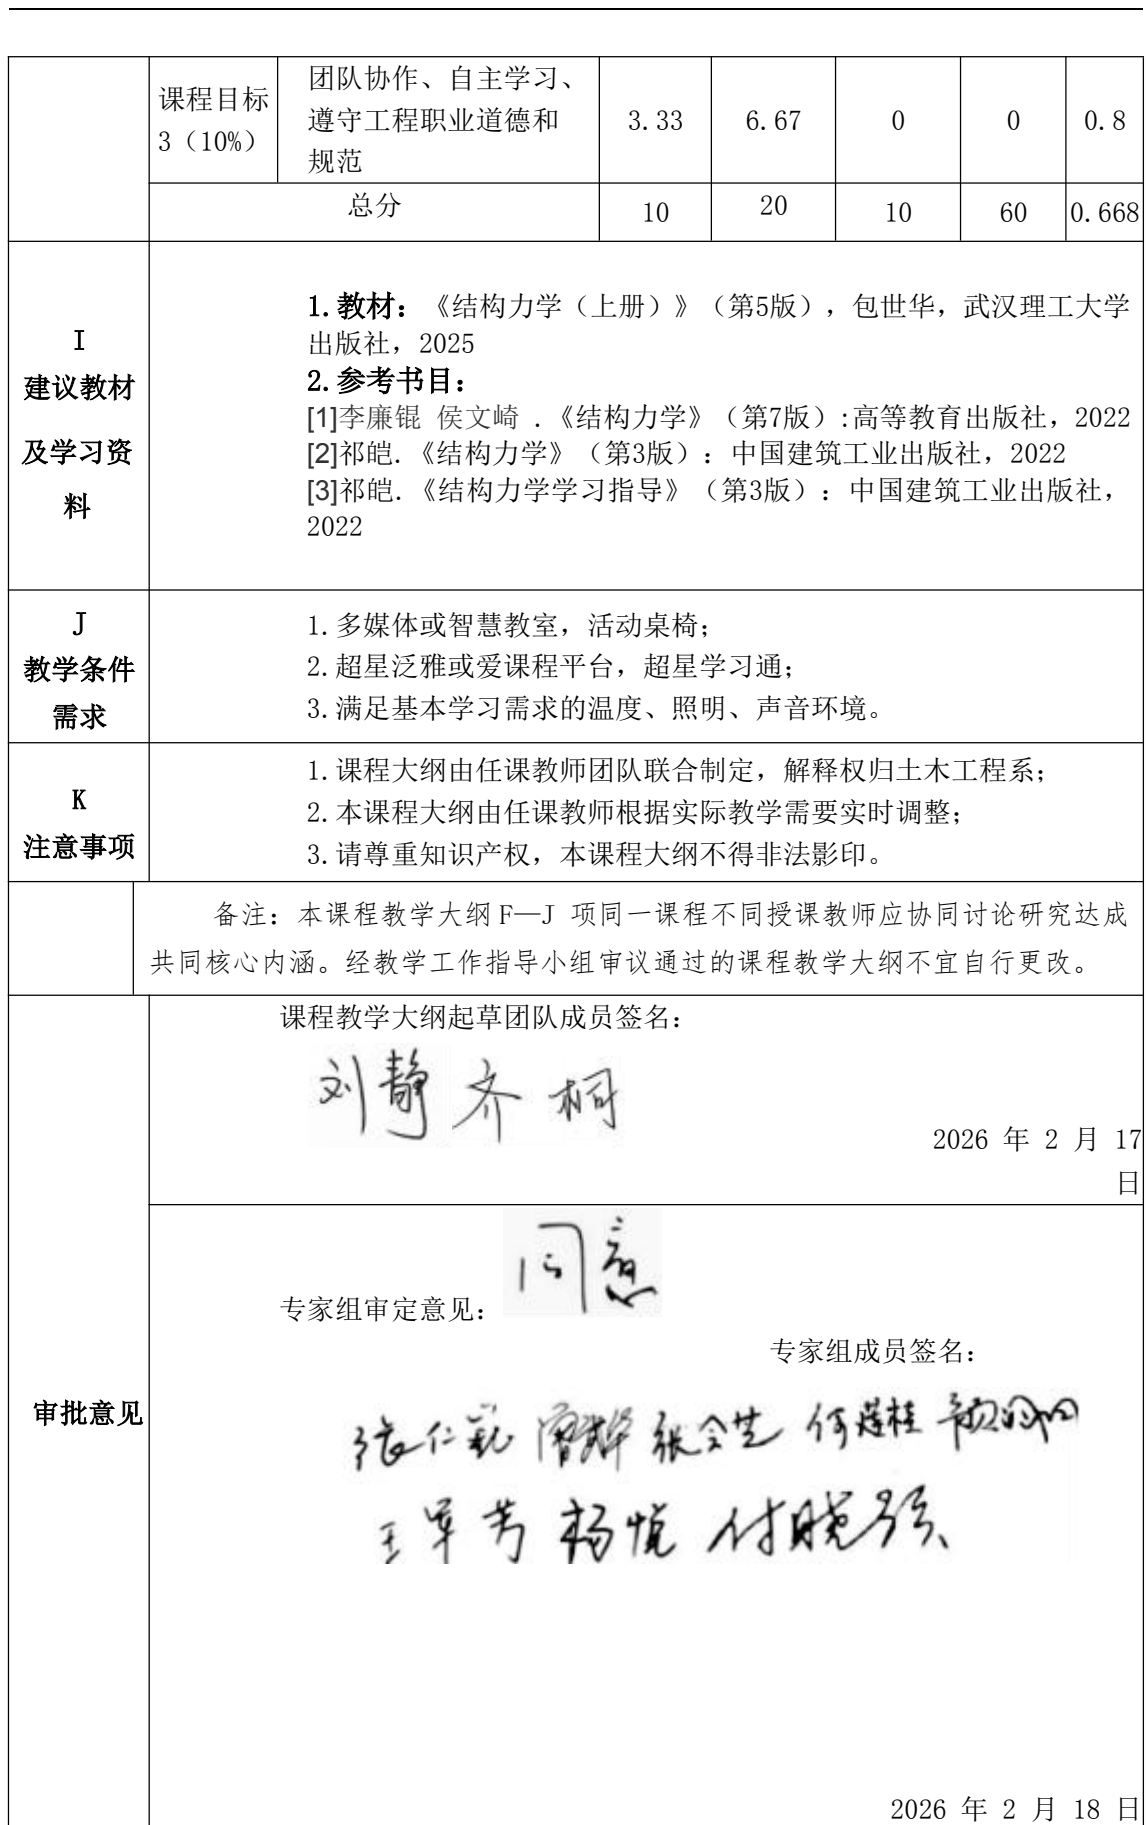 课程目标3（10%） 团队协作、自主学习、遵守工程职业道德和规范 3.33 6.67 0 0 0.8
总分 10 20 10 60 0.668
I
建议教材
及学习资
料
1.教材：《结构力学（上册）》（第5版），包世华，武汉理工大学
出版社，2025
2.参考书目：
[1]李廉锟 侯文崎 .《结构力学》（第7版）:高等教育出版社，2022
[2]祁皑.《结构力学》（第3版）：中国建筑工业出版社，2022
[3]祁皑.《结构力学学习指导》（第3版）：中国建筑工业出版社，
2022
J
教学条件
需求
1.多媒体或智慧教室，活动桌椅；
2.超星泛雅或爱课程平台，超星学习通；
3.满足基本学习需求的温度、照明、声音环境。
K
注意事项
1.课程大纲由任课教师团队联合制定，解释权归土木工程系；
2.本课程大纲由任课教师根据实际教学需要实时调整；
3.请尊重知识产权，本课程大纲不得非法影印。
备注：本课程教学大纲F—J 项同一课程不同授课教师应协同讨论研究达成
共同核心内涵。经教学工作指导小组审议通过的课程教学大纲不宜自行更改。
审批意见
课程教学大纲起草团队成员签名：
刘静 齐桐
2026 年 2 月 17
日
同意
专家组审定意见：
专家组成员签名：
张仁 张会芝 何莲桂
王军芳 杨 付晓强
2026 年 2 月 18 日